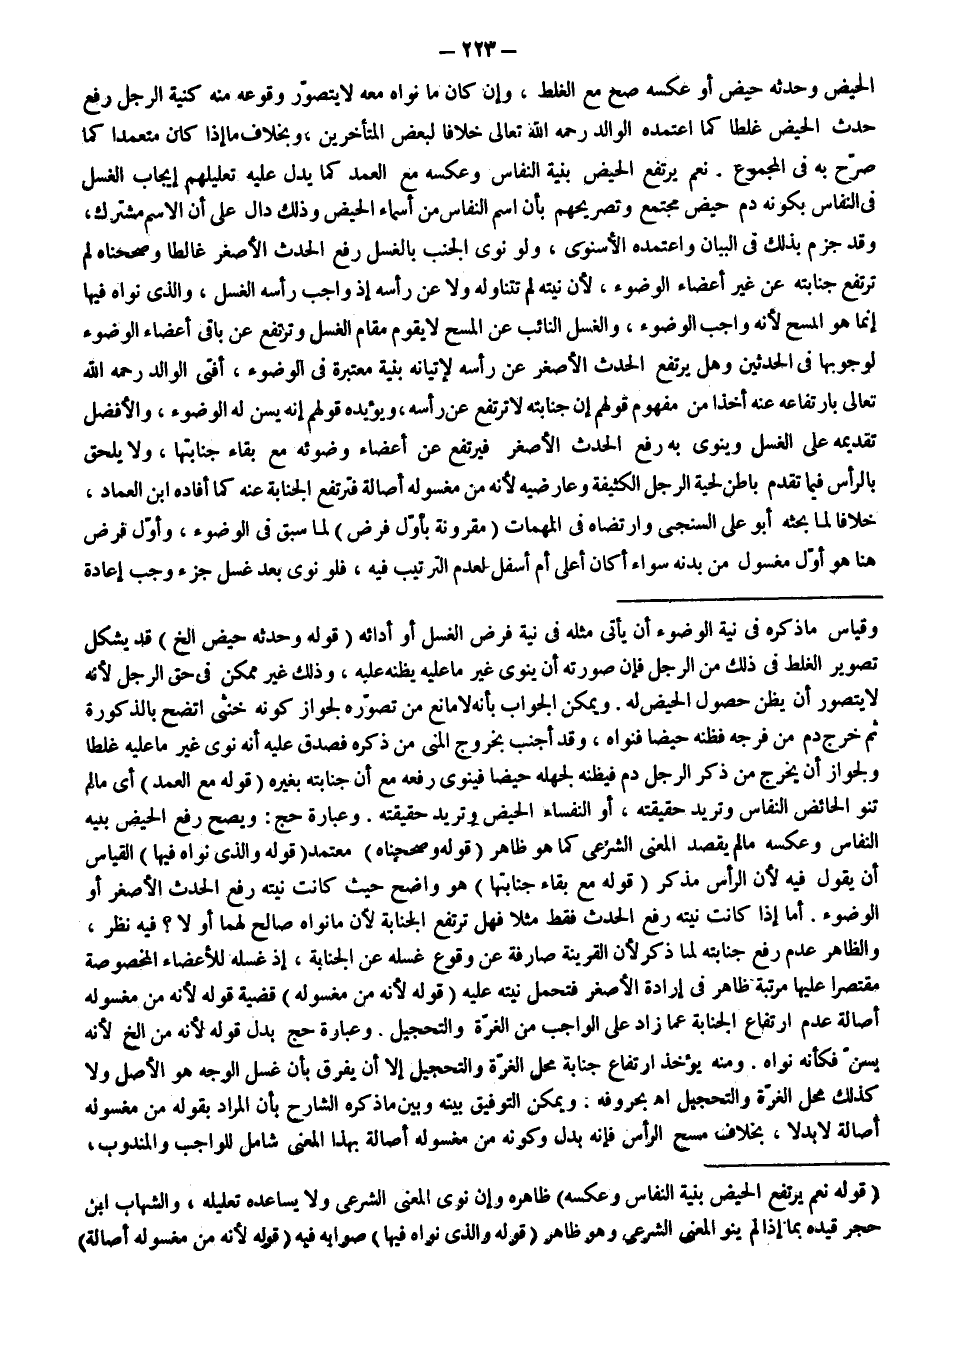 – ٢٢٣ –
الحيض وحدثه حيض أو عكسه صح مع الغلط ، وإن كان ما نواه معه لايتصوّر وقوعه منه كنية الرجل رفع
حدث الحيض غلطا كما اعتمده الوالد رحمه الله تعالى خلافا لبعض المتأخرين ، وبخلاف ماإذا كان متعمدا كما
صرّح به فى المجموع . نعم يرتفع الحيض بنية النفاس وعكسه مع العمد كما يدل عليه تعليلهم إيجاب الغسل
فى النفاس بكونه دم حيض مجتمع وتصريحهم بأن اسم النفاس من أسماء الحيض وذلك دال على أن الاسم مشترك ،
وقد جزم بذلك فى البيان واعتمده الأسنوى ، ولو نوى الجنب بالغسل رفع الحدث الأصغر غالطا وصححناه لم
ترتفع جنابته عن غير أعضاء الوضوء ، لأن نيته لم تتناوله ولا عن رأسه إذ واجب رأسه الغسل ، والذى نواه فيها
إنما هو المسح لأنه واجب الوضوء ، والغسل النائب عن المسح لايقوم مقام الغسل وترتفع عن باقى أعضاء الوضوء
لوجوبها فى الحدثين وهل يرتفع الحدث الأصغر عن رأسه لإتيانه بنية معتبرة فى الوضوء ، أفتى الوالد رحمه الله
تعالى بارتفاعه عنه أخذا من مفهوم قولهم إن جنابته لاترتفع عن رأسه ، ويؤيده قولهم إنه يسن له الوضوء ، والأفضل
تقديمه على الغسل وينوى به رفع الحدث الأصغر فيرتفع عن أعضاء وضوئه مع بقاء جنابتها ، ولا يلحق
بالرأس فيما تقدم باطن لحية الرجل الكثيفة وعارضيه لأنه من مغسوله أصالة فترتفع الجنابة عنه كما أفاده ابن العماد ،
خلافا لما بحثه أبو على السنجى وارتضاه فى المهمات ( مقرونة بأوّل فرض ) لما سبق فى الوضوء ، وأوّل فرض
هنا هو أوّل مغسول من بدنه سواء أكان أعلى أم أسفل لعدم الترتيب فيه ، فلو نوى بعد غسل جزء وجب إعادة
وقياس ماذكره فى نية الوضوء أن يأتى مثله فى نية فرض الغسل أو أدائه ( قوله وحدثه حيض الخ ) قد يشكل
تصوير الغلط فى ذلك من الرجل فإن صورته أن ينوى غير ماعليه يظنه عليه ، وذلك غير ممكن فى حق الرجل لأنه
لايتصور أن يظن حصول الحيض له . ويمكن الجواب بأنه لامانع من تصوّره لجواز كونه خنثى اتضح بالذكورة
ثم خرج دم من فرجه فظنه حيضا فنواه ، وقد أجنب بخروج المنى من ذكره فصدق عليه أنه نوى غير ماعليه غلطا
ولجواز أن يخرج من ذكر الرجل دم فيظنه لجهله حيضا فينوى رفعه مع أن جنابته بغيره ( قوله مع العمد ) أى مالم
تنو الحائض النفاس وتريد حقيقته ، أو النفساء الحيض وتريد حقيقته . وعبارة حج : ويصح رفع الحيض بنيه
النفاس وعكسه مالم يقصد المعنى الشرعى كما هو ظاهر ( قوله وصححناه ) معتمد ( قوله والذى نواه فيها ) القياس
أن يقول فيه لأن الرأس مذكر ( قوله مع بقاء جنابتها ) هو واضح حيث كانت نيته رفع الحدث الأصغر أو
الوضوء . أما إذا كانت نيته رفع الحدث فقط مثلا فهل ترتفع الجنابة لأن مانواه صالح لهما أو لا ؟ فيه نظر ،
والظاهر عدم رفع جنابته لما ذكر لأن القرينة صارفة عن وقوع غسله عن الجنابة ، إذ غسله للأعضاء المخصوصة
مقتصرا عليها مرتبة ظاهر فى إرادة الأصغر فتحمل نيته عليه ( قوله لأنه من مغسوله ) قضية قوله لأنه من مغسوله
أصالة عدم ارتفاع الجنابة عما زاد على الواجب من الغرّة والتحجيل . وعبارة حج بدل قوله لأنه من الخ لأنه
يسنّ فكأنه نواه . ومنه يؤخذ ارتفاع جنابة محل الغرّة والتحجيل إلا أن يفرق بأن غسل الوجه هو الأصل ولا
كذلك محل الغرّة والتحجيل اه بحروفه : ويمكن التوفيق بينه وبين ماذكره الشارح بأن المراد بقوله من مغسوله
أصالة لابدلا ، بخلاف مسح الرأس فإنه بدل وكونه من مغسوله أصالة بهذا المعنى شامل للواجب والمندوب ،
( قوله نعم يرتفع الحيض بنية النفاس وعكسه ) ظاهره وإن نوى المعنى الشرعى ولا يساعده تعليله ، والشهاب ابن
حجر قيده بما إذا لم ينو المعنى الشرعى وهو ظاهر ( قوله والذى نواه فيها ) صوابه فيه ( قوله لأنه من مغسوله أصالة )